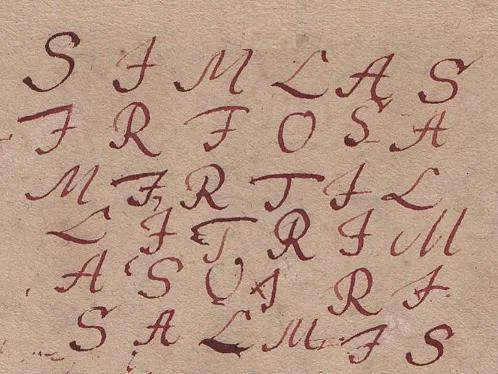 S I M L A S
I R I O S A
M I R T I L
L I T R I M
A S O I R I
S A L M I S